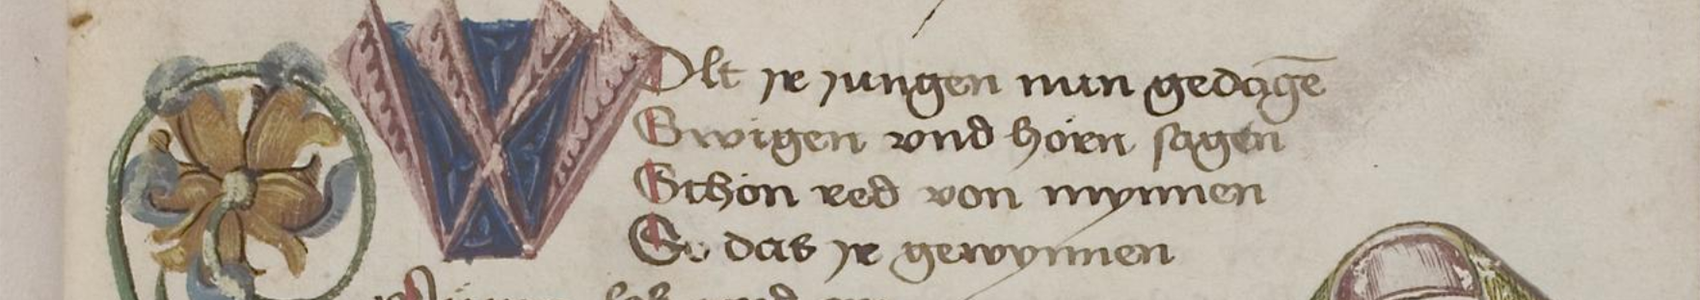 WOlt jr jungen nun gedagē
Swigen vnd hörn sagen
Schön red von mynnen
So das jr gewynnen